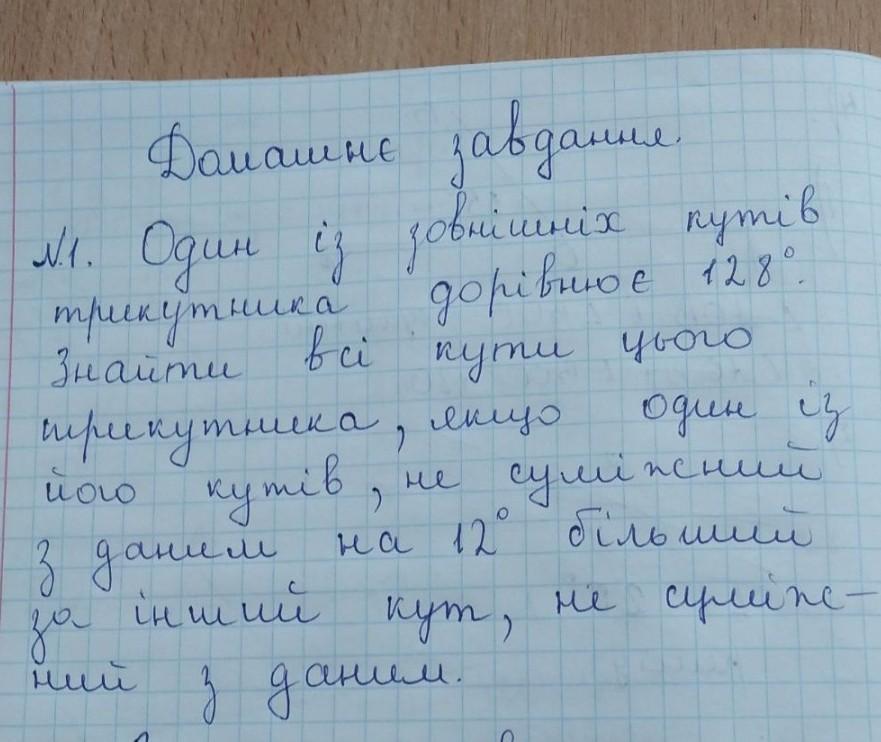 Домашнє завдання.
№1. Один із зовнішніх кутів
трикутника дорівнює 128°.
Знайти всі кути цього
трикутника, якщо один із
його кутів, не суміжний
з даним на 12° більший
за інший кут, не суміж-
ний з даним.